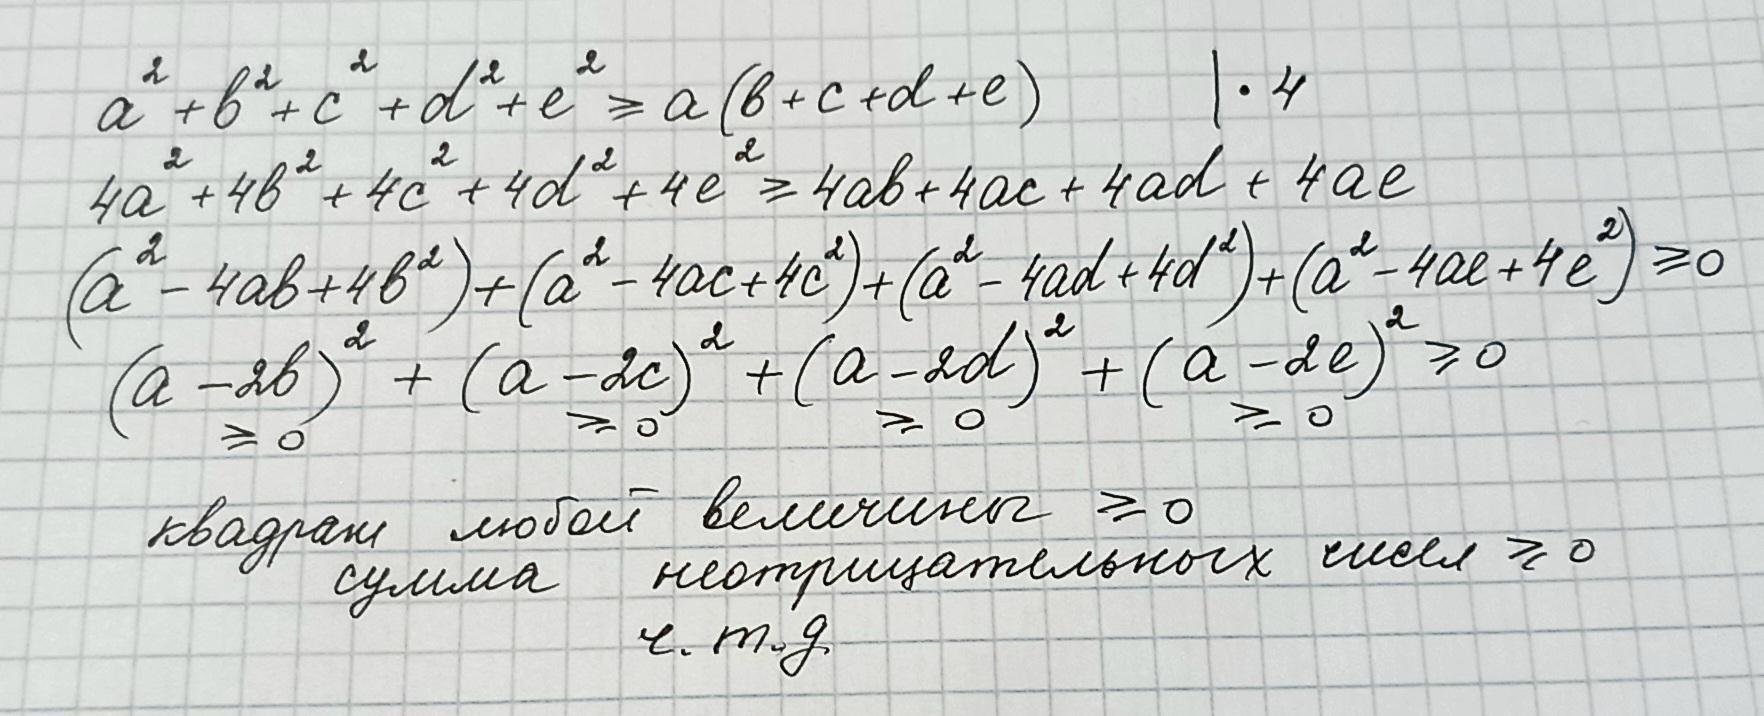 a² + b² + c² + d² + e² ⩾ a(b + c + d + e) | · 4
4a² + 4b² + 4c² + 4d² + 4e² ⩾ 4ab + 4ac + 4ad + 4ae
(a² - 4ab + 4b²) + (a² - 4ac + 4c²) + (a² - 4ad + 4d²) + (a² - 4ae + 4e²) ⩾ 0
(a - 2b)² + (a - 2c)² + (a - 2d)² + (a - 2e)² ⩾ 0
⩾ 0 ⩾ 0 ⩾ 0 ⩾ 0
квадрат любой величины ⩾ 0
сумма неотрицательных чисел ⩾ 0
ч.т.д.